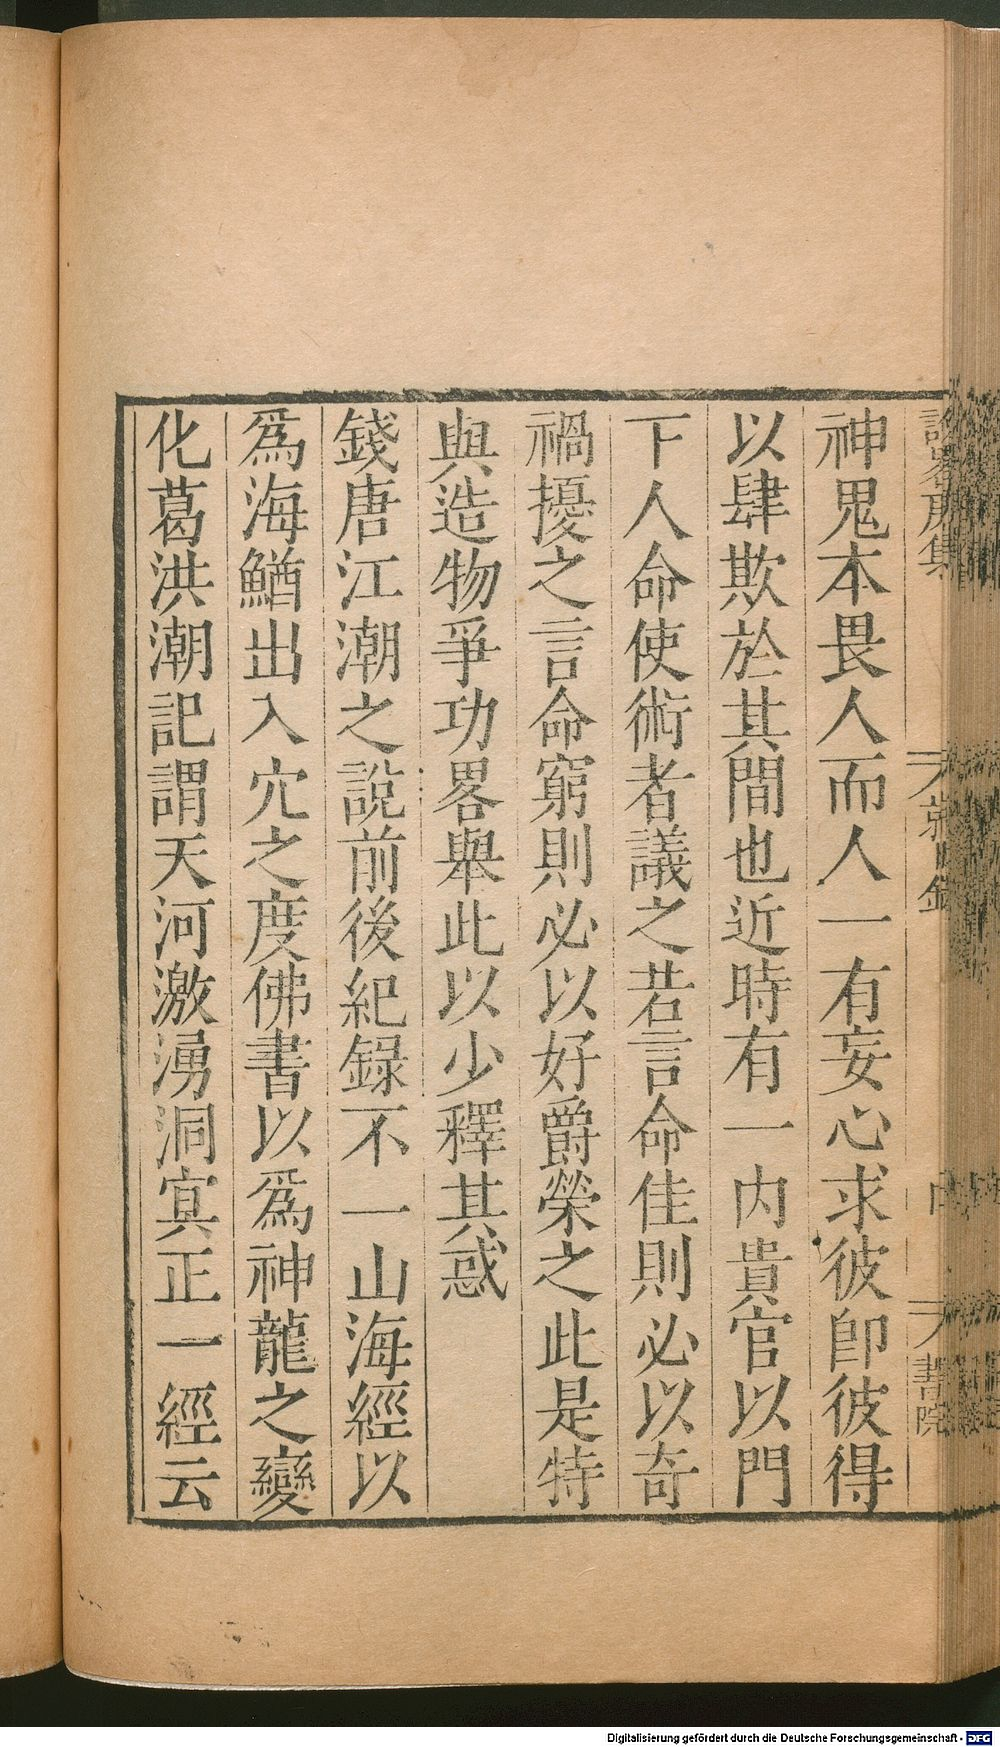 神鬼本畏人而人一有妄心求彼卽彼得
以肆欺於其間也近時有一内貴官以門
下人命使術者議之若言命佳則必以奇
禍擾之言命窮則必以好爵榮之此是特
與造物爭功畧舉此以少釋其惑
錢唐江潮之說前後紀錄不一山海經以
爲海鰌出入穴之度佛書以爲神龍之變
化葛洪潮記謂天河激湧洞冥正一經云
書院
Digitalisierung gefördert durch die Deutsche Forschungsgemeinschaft - DFG